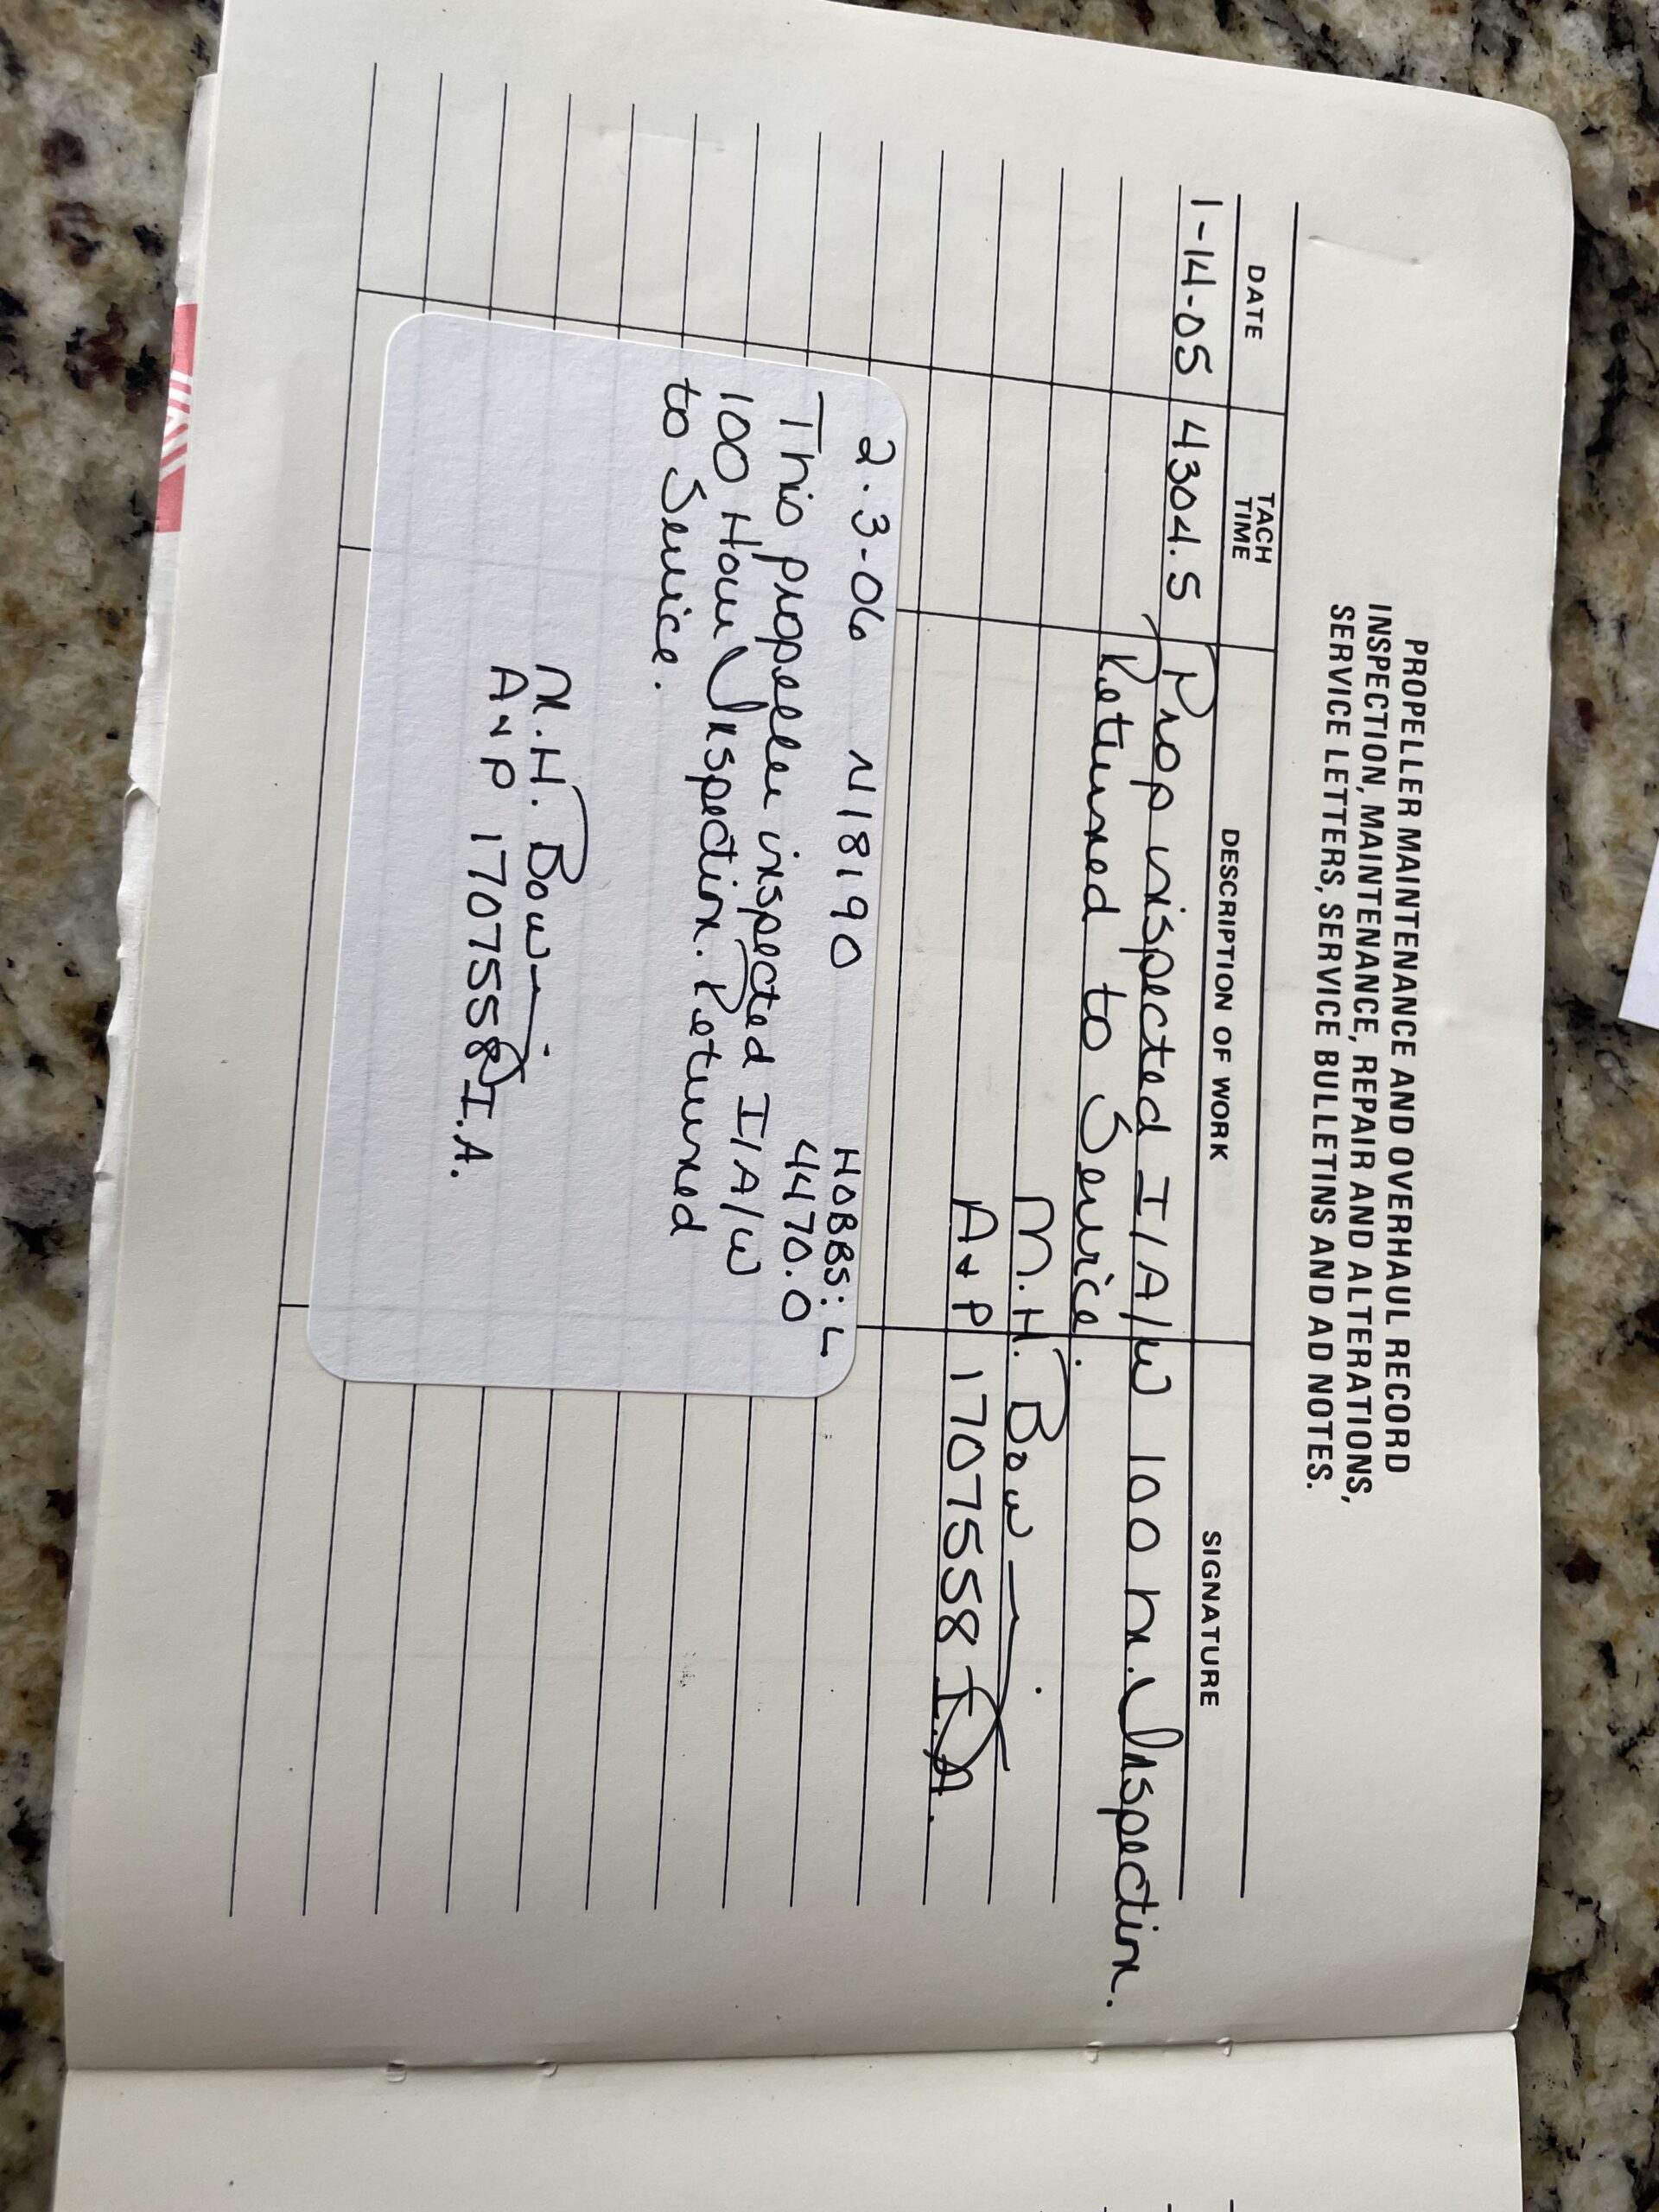 PROPELLER MAINTENANCE AND OVERHAUL RECORD
INSPECTION, MAINTENANCE, REPAIR AND ALTERATIONS,
SERVICE LETTERS, SERVICE BULLETINS AND AD NOTES.
DATE TACH TIME DESCRIPTION OF WORK SIGNATURE
1-14-05 4304.5 Prop inspected I/A/W 100 hr. Inspection.
Returned to Service.
M.H. Bow
A&P 1707558 I.A.
2.3-06 N18190 HOBBS:
4470.0
This propeller inspected I/A/W
100 Hour Inspection. Returned
to Service.
M.H. Bow
A&P 1707558 I.A.